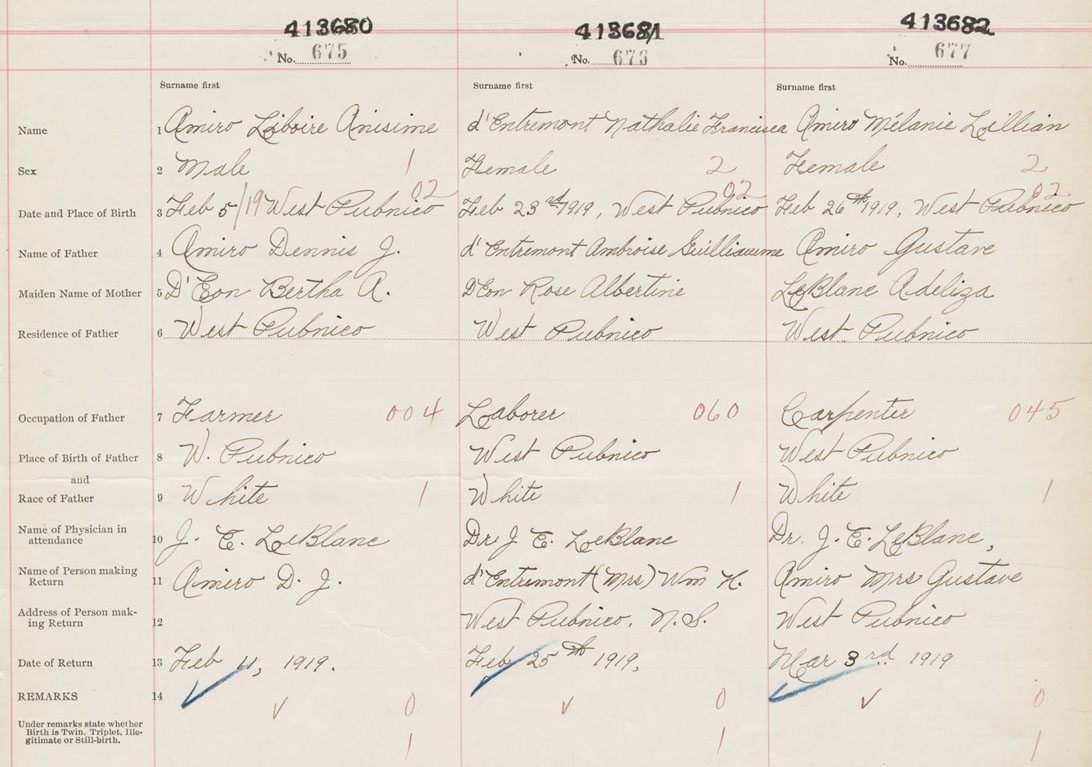 413680 413681 413682
No. 675 No. 676 No. 677
Surname first Surname first Surname first
Name 1 Amiro Liboire Anisime d'Entremont Nathalie Francisca Amiro Mélanie Lillian
Sex 2 Male 1 Female 2 Female 2
02 02 02
Date and Place of Birth 3 Feb 5/19 West Pubnico Feb 23rd 1919, West Pubnico Feb 26th 1919, West Pubnico
Name of Father 4 Amiro Dennis J. d'Entremont Ambroise Guilliaume Amiro Gustave
Maiden Name of Mother 5 D'Eon Bertha A. D'Eon Rose Albertine LeBlanc Adeliza
Residence of Father 6 West Pubnico West Pubnico West Pubnico
Occupation of Father 7 Farmer 004 Laborer 060 Carpenter 045
Place of Birth of Father 8 W. Pubnico West Pubnico West Pubnico
and
Race of Father 9 White 1 White 1 White 1
Name of Physician in attendance 10 J. E. LeBlanc Dr J E. LeBlanc Dr. J. E. LeBlanc,
Name of Person making Return 11 Amiro D. J. d'Entremont (Mrs) Wm H. Amiro Mrs Gustave
Address of Person making Return 12 West Pubnico, N.S. West Pubnico
Date of Return 13 Feb 11, 1919. Feb 25th 1919, Mar 3rd 1919
REMARKS 14 0 0 0
Under remarks state whether
Birth is Twin, Triplet, Ille-
gitimate or Still-birth. 1 1 1